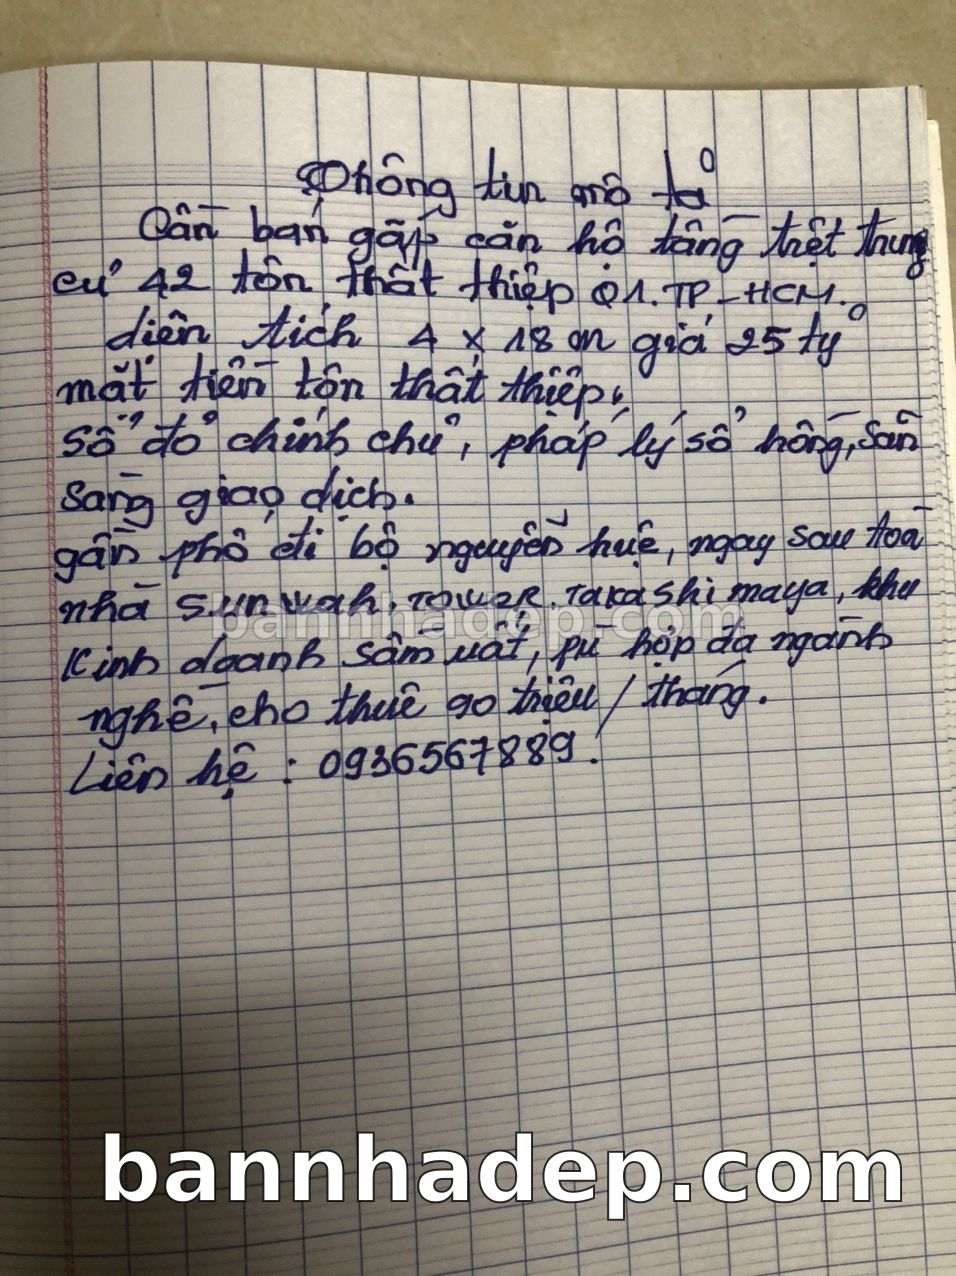 Thông tin mô tả
Cần bán gấp căn hộ tầng trệt trung
cư 42 tôn thất thiệp Q1.TP-HCM.
diên tích 4 x 18 m giá 25 tỷ
mặt tiền tôn thất thiệp,
Sổ đỏ chính chủ, pháp lý sổ hồng, sẵn
sàng giao dịch.
gần phố đi bộ nguyễn huệ, ngay sau toà
nhà sunwah, TOWER, Takashimaya, khu
Kinh doanh sầm uất, pù hợp đa ngành
nghề, cho thuê 90 triệu / tháng.
Liên hệ : 0936567889.
bannhadep.com
bannhadep.com